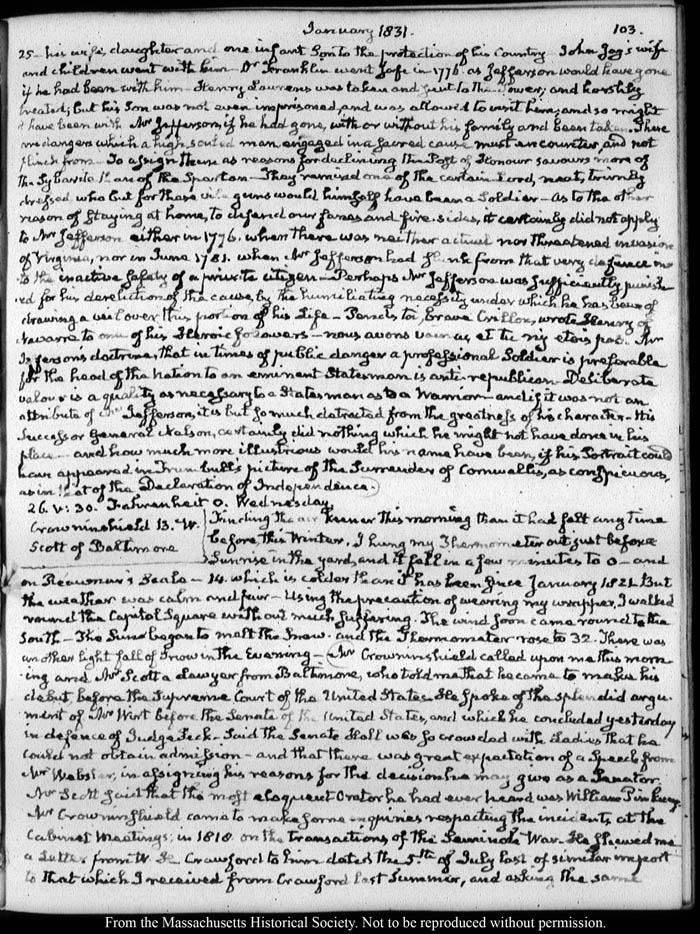 January 1831.
103.
25- his wife, daughter and one infant Son to the protection of his Country John Jay's wife
and children went with him- Dr Franklin went safe in 1776 as Jefferson would have gone
if he had been with him- Henry Laurens was taken and put to the Tower; and harshly
treated; but his Son was not even imprisoned, and was allowed to visit him; and so might
it have been with Mr Jefferson, if he had gone, with or without his family and been taken. There
are dangers which a high-souled man engaged in a sacred cause must encounter, and not
flinch from- To assign them as reasons for declining the Post of Honour savours more of
the Sybarite than of the Spartan- They remind one of the certain Lord, neat, trimly
dressed, who but for those vile guns would himself have been a Soldier- As to the other
reason of staying at home, to defend our fanes and fire-sides, it certainly did not apply
to Mr Jefferson either in 1776. when there was neither actual nor threatened invasion
of Virginia, nor in June 1781. when Mr Jefferson had from that very defence
to the inactive safety of a private citizen- Perhaps Mr Jefferson was sufficiently punish
ed for his dereliction of the cause, by the humiliating necessity under which he has been of
drawing a veil over this portion of his Life- Pends toi, brave Crillon, wrote Henry of
Navarre to one of his Heroic followers- nous avons vaincu, et tu n'y etois pas. Mr
Jeffersons doctrine, that in times of public danger a professional Soldier is preferable
for the head of the Nation to an eminent Statesman is anti-republican- Deliberate
valour is a quality as necessary to a Statesman as to a Warrior- and if it was not an
attribute of Mr Jefferson, it is but so much detracted from the greatness of his character- His
Successor General Nelson, certainly did nothing which he might not have done in his
place- and how much more illustrious would his name have been, if his Portrait could
have appeared in Trumbull's picture of the Surrender of Cornwallis, as conspicuous,
as in that of the Declaration of Independence.
26. V: 30. Fahrenheit 0. Wednesday
Crowninshield B. W.
Scott of Baltimore
Finding the air keener this morning than it had felt any time
before this Winter, I hung my Thermometer out just before
Sunrise in the yard, and it fell in a few minutes to 0- and
on Reaumur's Scale- 14. which is colder than it has been since January 1821. But
the weather was calm and fair- Using the precaution of wearing my wrapper, I walked
round the Capitol Square without much suffering. The wind soon came round to the
South- The Sun began to melt the Snow- and the Thermometer rose to 32. There was
another light fall of Snow in the Evening- Mr Crowninshield called upon me this morn
ing and Mr Scott a Lawyer from Baltimore, who told me that he came to make his
debut, before the Supreme Court of the United States. He spoke of the splendid argu-
ment of Mr Wirt before the Senate of the United States, and which he concluded yesterday
in defence of Judge Peck- Said the Senate Hall was so crowded with Ladies that he
could not obtain admission- and that there was great expectation of a Speech from
Mr Webster, in assigning his reasons for the decision he may give as a Senator.
Mr Scott said that the most eloquent Orator he had ever heard was William Pinkney.
Mr Crowninshield came to make some enquiries respecting the incidents at the
Cabinet Meetings; in 1818. on the transactions of the Seminole War. He shewed me
a Letter from W. H. Crawford to him dated the 5th of July last of similar import
to that which I received from Crawford last Summer, and asking the same
From the Massachusetts Historical Society. Not to be reproduced without permission.